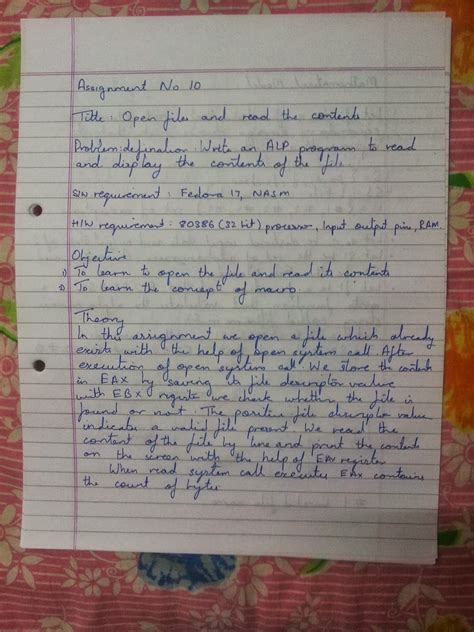 Assignment No 10
Title : Open files and read the contents
Problem defination : Write an ALP program to read
and display the contents of the file.
S/W requirement : Fedora 17, NASM
H/W requirement : 80386 (32 bit) processor, Input output pins, RAM.
Objective
1) To learn to open the file and read its contents
2) To learn the concept of macro.
Theory
In this assignment we open a file which already
exists with the help of open system call. After
execution of open system call We store the contents
in EAX by saving to file descriptor value
with EBX register we check whether the file is
found or not. The positive file descriptor value
indicate a valid file present. We read the
content of the file by line and print the contents
on the screen with the help of EAX register
When read system call executes EAX contains
the count of bytes